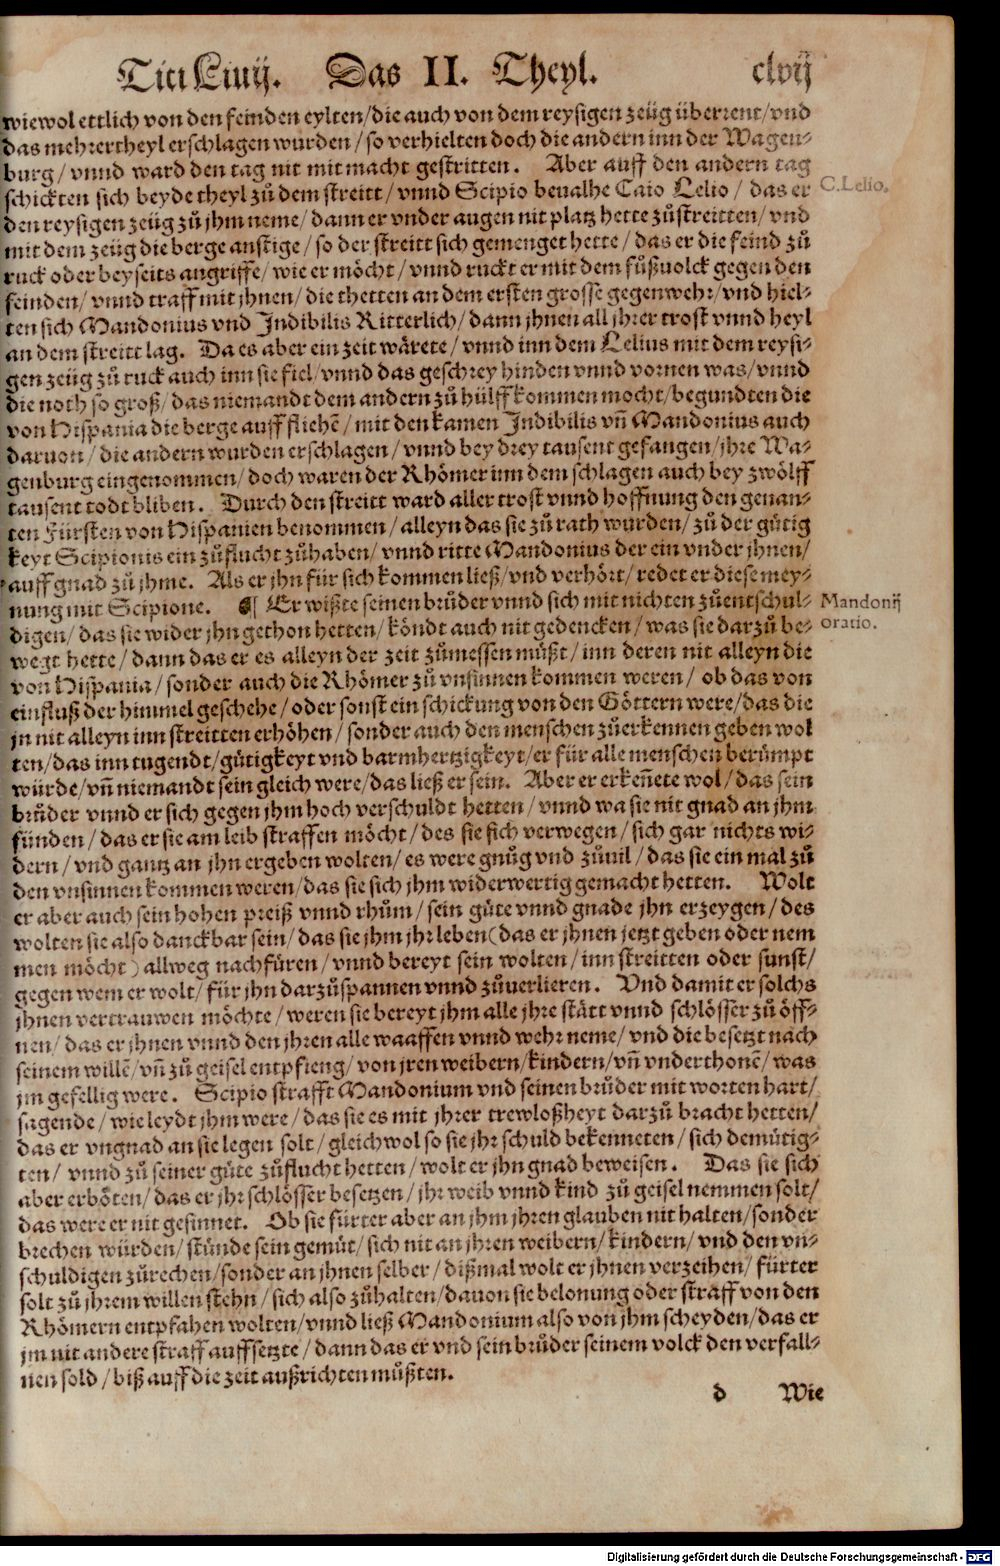 Titi Liuij. Das II. Theyl. clvij
wiewol ettlich von den feinden eylten/die auch von dem reysigen zeüg überrent/vnd
das mehrertheyl erschlagen wurden/so verhielten doch die andern inn der Wagen⸗
burg/vnnd ward den tag nit mit macht gestritten. Aber auff den andern tag
schickten sich beyde theyl zů dem streitt/vnnd Scipio beualhe Caio Lelio/das er
C.Lelio.
den reysigen zeüg zů jhm neme/dann er vnder augen nit platz hette zůstreitten/vnd
mit dem zeüg die berge anstige/so der streitt sich gemenget hette/das er die feind zů
ruck oder beyseits angriffe/wie er möcht/vnnd ruckt er mit dem fůßuolck gegen den
feinden/vnnd traff mit jhnen/die thetten an dem ersten grosse gegenwehr/vnd hiel⸗
ten sich Mandonius vnd Indibilis Ritterlich/dann jhnen all jhrer trost vnnd heyl
an dem streitt lag. Da es aber ein zeit wärete/vnnd inn dem Lelius mit dem reysi⸗
gen zeüg zů ruck auch inn sie fiel/vnnd das geschrey hinden vnnd vornen was/vnnd
die noth so groß/das niemandt dem andern zů hülff kommen mocht/begundten die
von Hispania die berge auff fliehē/mit den kamen Indibilis vñ Mandonius auch
daruon/die andern wurden erschlagen/vnnd bey drey tausent gefangen/jhre Wa⸗
genburg eingenommen/doch waren der Rhömer inn dem schlagen auch bey zwölff
tausent todt bliben. Durch den streitt ward aller trost vnnd hoffnung den genan⸗
ten Fürsten von Hispanien benommen/alleyn das sie zů rath wurden/zů der gütig
keyt Scipionis ein zůflucht zůhaben/vnnd ritte Mandonius der ein vnder jhnen/
auff gnad zů jhme. Als er jhn für sich kommen ließ/vnd verhört/redet er diese mey⸗
nung mit Scipione. ¶ Er wißte seinen brůder vnnd sich mit nichten zůentschul⸗
Mandonij
oratio.
digen/das sie wider jhn gethon hetten/köndt auch nit gedencken/was sie darzů be⸗
wegt hette/dann das er es alleyn der zeit zůmessen můßt/inn deren nit alleyn die
von Hispania/sonder auch die Rhömer zů vnsinnen kommen weren/ob das von
einfluß der himmel geschehe/oder sonst ein schickung von den Göttern were/das die
jn nit alleyn inn streitten erhöhen/sonder auch den menschen zůerkennen geben wol
ten/das inn tugendt/gütigkeyt vnd barmhertzigkeyt/er für alle menschen berümpt
würde/vñ niemandt sein gleich were/das ließ er sein. Aber er erkeñete wol/das sein
brůder vnnd er sich gegen jhm hoch verschuldt hetten/vnnd wa sie nit gnad an jhm
fünden/das er sie am leib straffen möcht/des sie sich verwegen/sich gar nichts wi⸗
dern/vnd gantz an jhn ergeben wolten/es were gnůg vnd zůuil/das sie ein mal zů
den vnsinnen kommen weren/das sie sich jhm widerwertig gemacht hetten. Wolt
er aber auch sein hohen preiß vnnd rhům/sein güte vnnd gnade jhn erzeygen/des
wolten sie also danckbar sein/das sie jhm jhr leben(das er jhnen jetzt geben oder nem
men möcht) allweg nachfüren/vnnd bereyt sein wolten/inn streitten oder sunst/
gegen wem er wolt/für jhn darzůspannen vnnd zůuerlieren. Vnd damit er solchs
jhnen vertrauwen möchte/weren sie bereyt jhm alle jhre stätt vnnd schlösser zů öff⸗
nen/das er jhnen vnnd den jhren alle waaffen vnnd wehr neme/vnd die besetzt nach
seinem willē/vñ zů geisel entpfieng/von jren weibern/kindern/vñ vnderthonē/was
jm gefellig were. Scipio strafft Mandonium vnd seinen brůder mit worten hart/
sagende/wie leydt jhm were/das sie es mit jhrer trewloßheyt darzů bracht hetten/
das er vngnad an sie legen solt/gleichwol so sie jhr schuld bekenneten/sich demütig⸗
ten/vnnd zů seiner güte zůflucht hetten/wolt er jhn gnad beweisen. Das sie sich
aber erböten/das er jhr schlösser besetzen/jhr weib vnnd kind zů geisel nemmen solt/
das were er nit gesinnet. Ob sie fürter aber an jhm jhren glauben nit halten/sonder
brechen würden/stünde sein gemüt/sich nit an jhren weibern/kindern/vnd den vn⸗
schuldigen zůrechen/sonder an jhnen selber/dißmal wolt er jhnen verzeihen/fürter
solt zů jhrem willen stehn/sich also zůhalten/dauon sie belonung oder straff von den
Rhömern entpfahen wolten/vnnd ließ Mandonium also von jhm scheyden/das er
jm nit andere straff auffsetzte/dann das er vnd sein brůder seinem volck den verfall⸗
nen sold/biß auff die zeit außrichten můßten.
d Wie
Digitalisierung gefördert durch die Deutsche Forschungsgemeinschaft - DFG